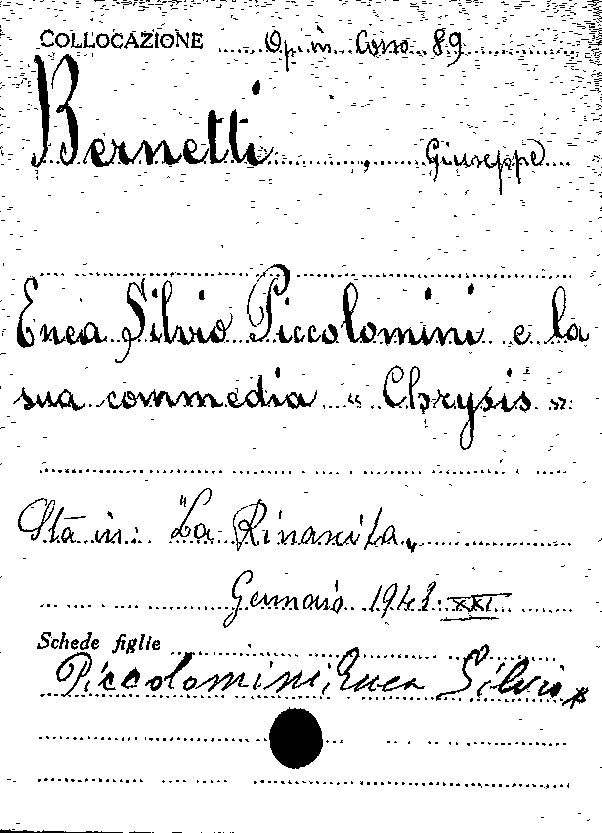 COLLOCAZIONE Op. in Corso 89
Bernetti, Giuseppe
Enea Silvio Piccolomini e la
sua commedia « Chrysis »
Sta in: "La Rinascita„
Gennaio 1943. XXI
Schede figlie
Piccolomini, Enea Silvio